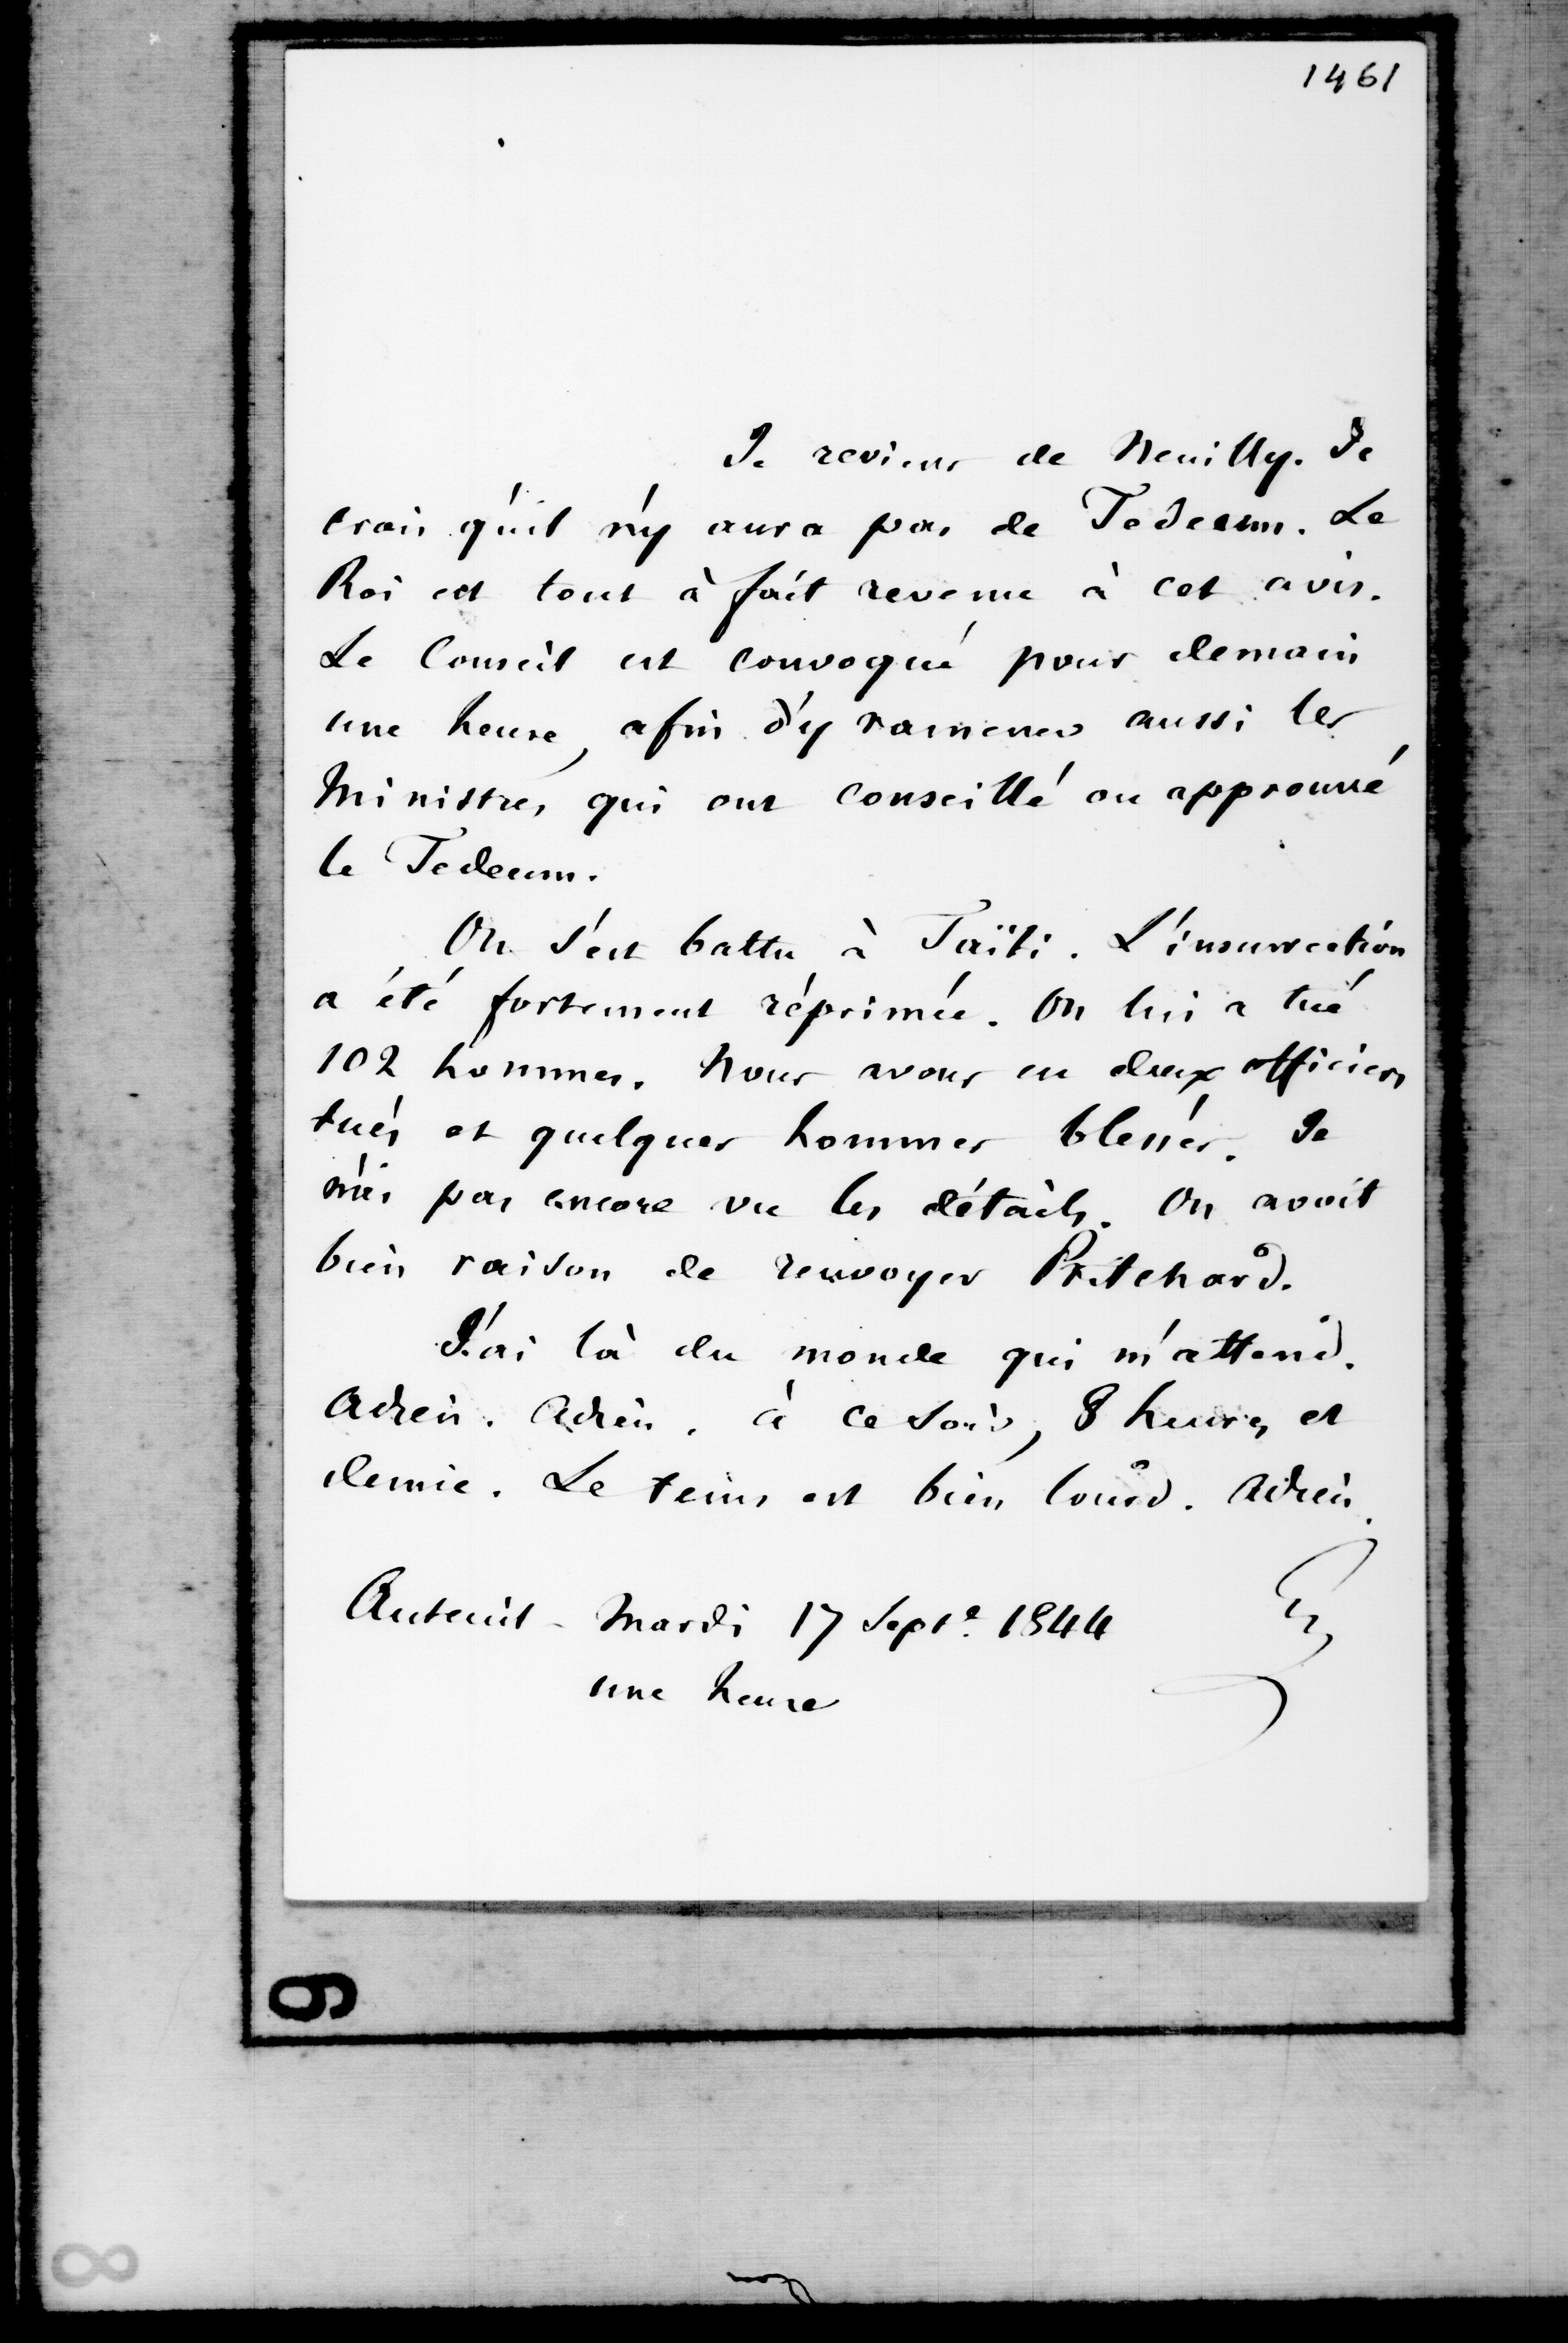 1461
Je reviens de Neuilly. Je
crois qu'il n'y aura pas de Tedeum. Le
Roi est tout à fait revenu à cet avis.
Le Conseil est convoqué pour demain
une heure, afin d'y ramener aussi les
Ministres qui ont conseillé ou approuvé
le Tedeum.
On s'est battu à Taïti. L'insurrection
a été fortement réprimée. On lui a tué
102 hommes. Nous avons eu deux officiers
tués et quelques hommes blessés. Je
n'ai pas encore vu les détails. On avoit
bien raison de renvoyer Pritchard.
J'ai là du monde qui m'attend.
Adieu. Adieu. à ce soir, 8 heures et
demie. Le tems est bien lourd. Adieu.
Auteuil - Mardi 17 Sept.e 1844
une heure
9
8